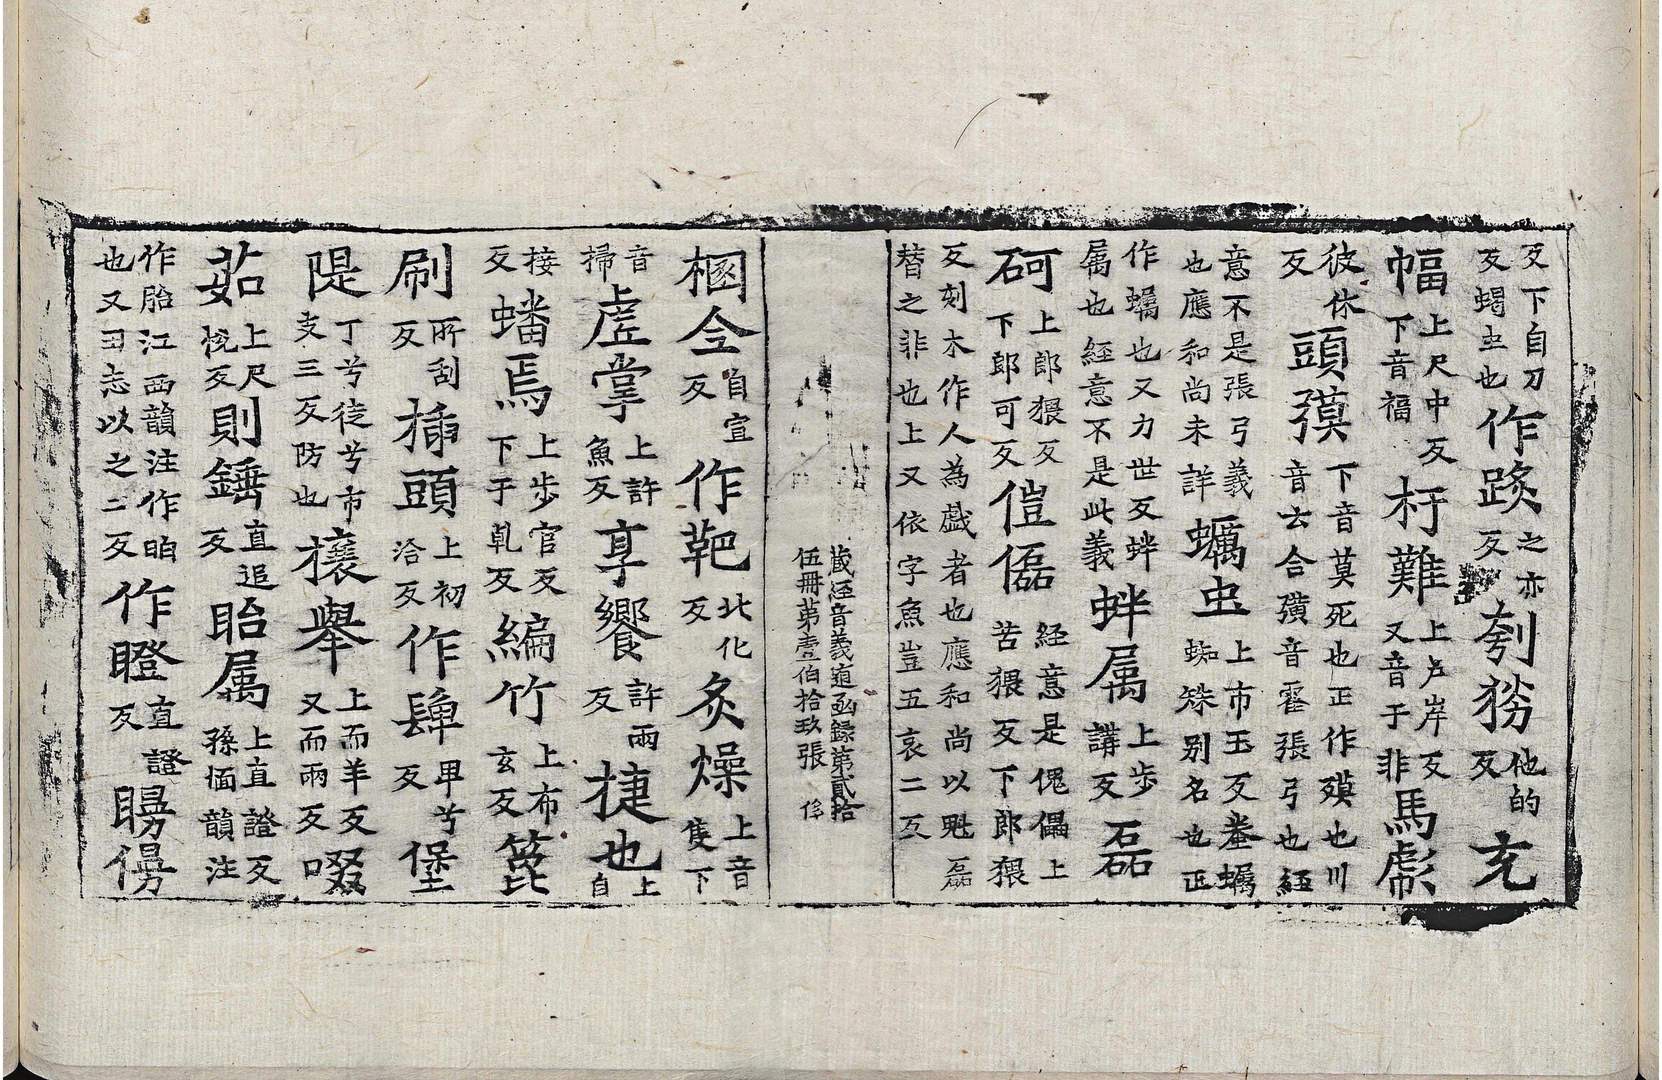 反下自刀反蝎虫也作踥之亦反刳㺃他的反充
幅上尺中反下音福杅難上卢岸反又音于非馬彪
彼休反頭㣻下音莫死也正作㱳也川音云合彉音霍張弓也経
意不是張弓義也應和尚未詳蠣虫上市玉反𧊅蠋蜘蛛别名也正
作蠣也又力世反蚌属也経意不是此義蚌属上步講反磊
砢上郎猥反下郎可反㒆儡経意是傀儡上苦猥反下郎猥
反刻木作人為戯者也應和尚以魁磊替之非也上又依字魚豈五哀二反
蔵経音義逈函録第貳拾伍冊第壹伯拾玖張
棞仝自宣反作靶北化反炙燥上音隻下
音掃虗掌上許魚反享饗許兩反捷也上自
接反蟠焉上步官反下于乹反編竹上布玄反箆
刷所刮反插頭上初洽反作肆甲兮反堡
隄丁兮徒兮市支三反防也攘舉上而羊反又而兩反啜
茹上尺悦反則錘直追反眙属上直證反孫愐韻注
作胎江西韻注作眙也又丑志以之二反作瞪直證反䁹㑱